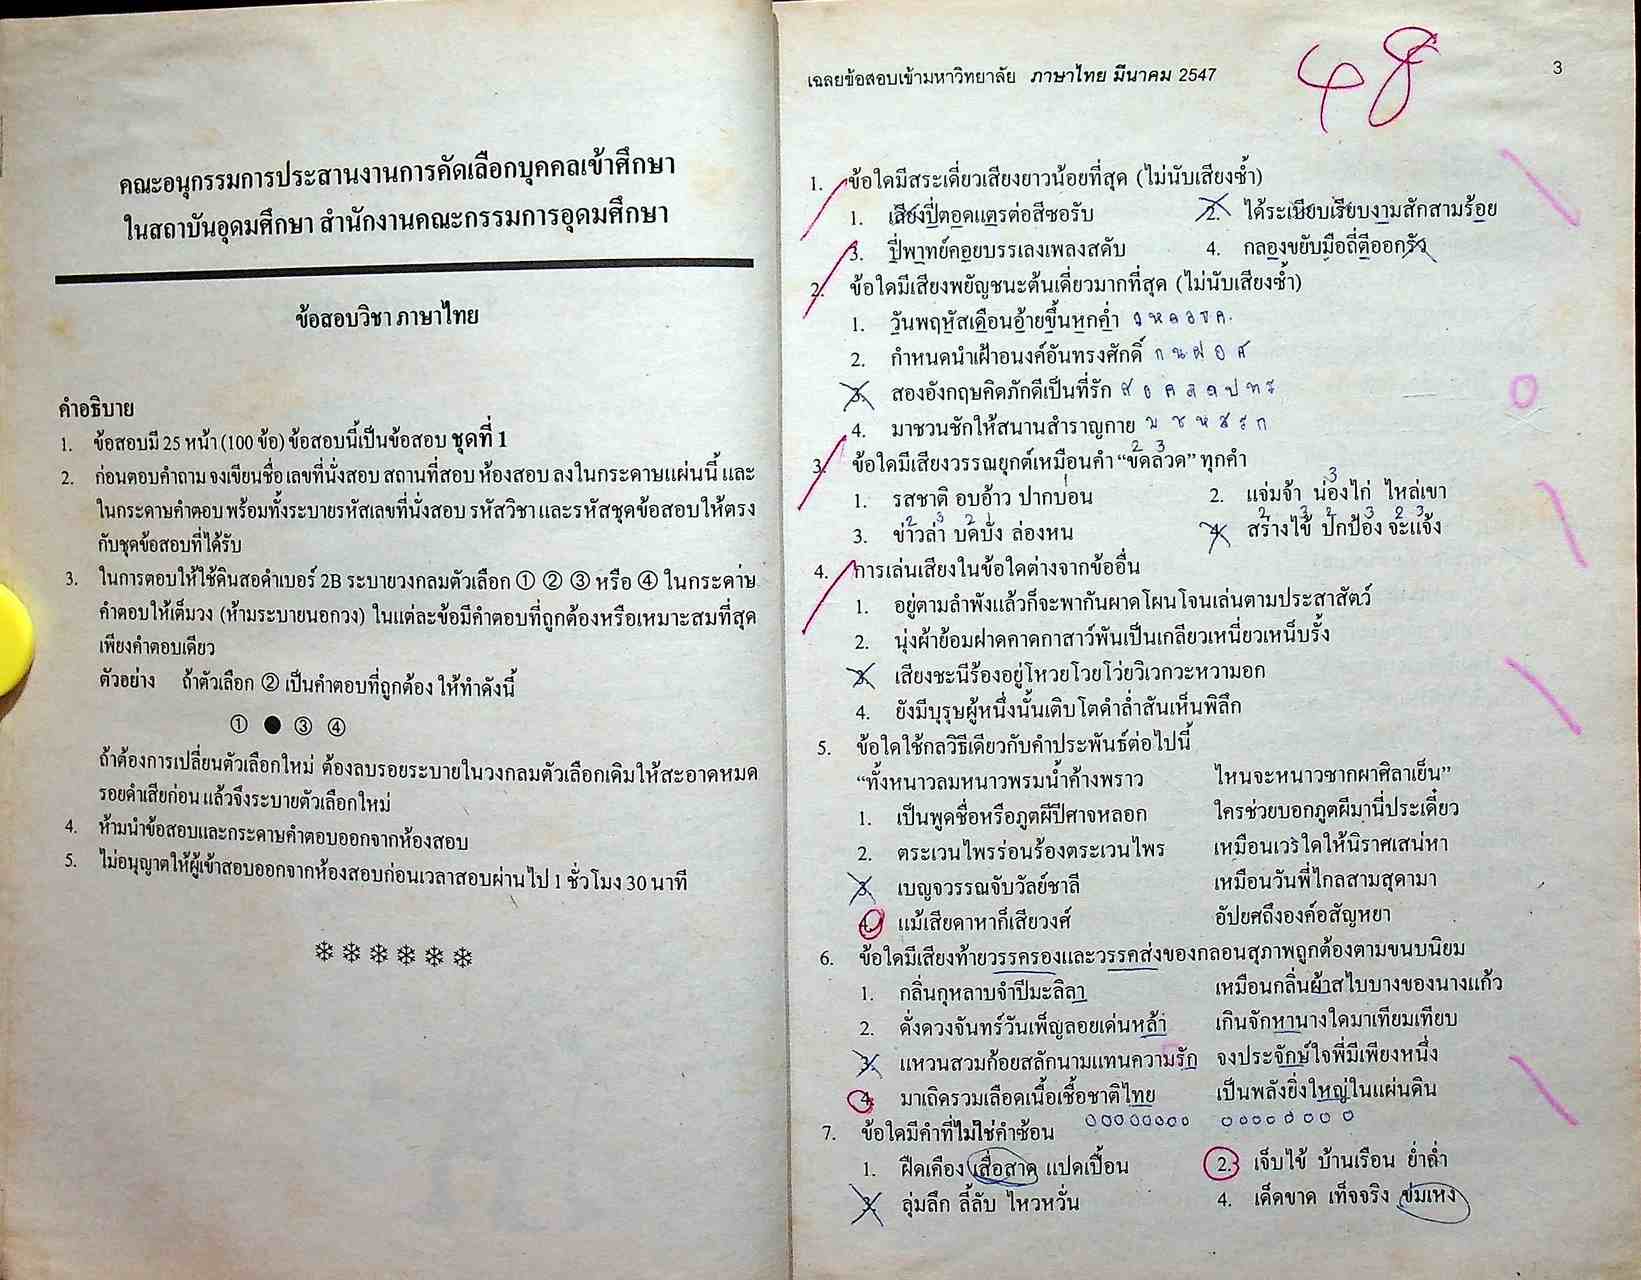 คณะอนุกรรมการประสานงานการคัดเลือกบุคคลเข้าศึกษา
ในสถาบันอุดมศึกษา สำนักงานคณะกรรมการอุดมศึกษา
ข้อสอบวิชา ภาษาไทย
คำอธิบาย
1. ข้อสอบมี 25 หน้า (100 ข้อ) ข้อสอบนี้เป็นข้อสอบ ชุดที่ 1
2. ก่อนตอบคำถาม จงเขียนชื่อ เลขที่นั่งสอบ สถานที่สอบ ห้องสอบ ลงในกระดาษแผ่นนี้ และ
ในกระดาษคำตอบ พร้อมทั้งระบายรหัสเลขที่นั่งสอบ รหัสวิชา และรหัสชุดข้อสอบให้ตรง
กับชุดข้อสอบที่ได้รับ
3. ในการตอบให้ใช้ดินสอดำเบอร์ 2B ระบายวงกลมตัวเลือก ① ② ③ หรือ ④ ในกระดาษ
คำตอบให้เต็มวง (ห้ามระบายนอกวง) ในแต่ละข้อมีคำตอบที่ถูกต้องหรือเหมาะสมที่สุด
เพียงคำตอบเดียว
ตัวอย่าง ถ้าตัวเลือก ② เป็นคำตอบที่ถูกต้อง ให้ทำดังนี้
① ● ③ ④
ถ้าต้องการเปลี่ยนตัวเลือกใหม่ ต้องลบรอยระบายในวงกลมตัวเลือกเดิมให้สะอาดหมด
รอยดำเสียก่อน แล้วจึงระบายตัวเลือกใหม่
4. ห้ามนำข้อสอบและกระดาษคำตอบออกจากห้องสอบ
5. ไม่อนุญาตให้ผู้เข้าสอบออกจากห้องสอบก่อนเวลาสอบผ่านไป 1 ชั่วโมง 30 นาที
เฉลยข้อสอบเข้ามหาวิทยาลัย ภาษาไทย มีนาคม 2547 3
48
1. ข้อใดมีสระเดี่ยวเสียงยาวน้อยที่สุด (ไม่นับเสียงซ้ำ)
1. เสียงปี่ตอดแตรต่อสีซอรับ 2. ได้ระเบียบเรียบงามสักสามร้อย
3. ปี่พาทย์คอยบรรเลงเพลงสดับ 4. กลองขยับมือถี่ตีออกรัว
2. ข้อใดมีเสียงพยัญชนะต้นเดี่ยวมากที่สุด (ไม่นับเสียงซ้ำ)
1. วันพฤหัสเดือนอ้ายขึ้นหกค่ำ ว ห ด อ ข ค
2. กำหนดนำเฝ้าอนงค์อันทรงศักดิ์ ก น ฝ อ ศ
3. สองอังกฤษคิดภักดีเป็นที่รัก
4. มาชวนชักให้สนานสำราญกาย ม ช ห ส ร ก
3. ข้อใดมีเสียงวรรณยุกต์เหมือนคำ “ขัดลวด” ทุกคำ
1. รสชาติ อบอ้าว ปากบ่อน 2. แจ่มจ้า น่องไก่ ไหล่เขา
3. ข่าวล่า บัดบัง ล่องหน 4. สร่างไข้ ปกป้อง จะแจ้ง
4. การเล่นเสียงในข้อใดต่างจากข้ออื่น
1. อยู่ตามลำพังแล้วก็จะพากันผาดโผนโจนเล่นตามประสาสัตว์
2. นุ่งผ้าย้อมฝาดคาดกาสาว์พันเป็นเกลียวเหนี่ยวเหน็บรั้ง
3. เสียงชะนีร้องอยู่โหวยโวยโว่ยวิเวกวะหวามอก
4. ยังมีบุรุษผู้หนึ่งนั้นเติบโตดำล่ำสันเห็นพิลึก
5. ข้อใดใช้กลวิธีเดียวกับคำประพันธ์ต่อไปนี้
“ทั้งหนาวลมหนาวพรมน้ำค้างพราว ไหนจะหนาวซากผาศิลาเย็น”
1. เป็นพูดชื่อหรือภูตผีปีศาจหลอก ใครช่วยบอกภูตผีมานี่ประเดี๋ยว
2. ตระเวนไพรร่อนร้องตระเวนไพร เหมือนเวรใดให้นิราศเสน่หา
3. เบญจวรรณจับวัลย์ชาลี เหมือนวันพี่ไกลสามสุดามา
4. แม้เสียดาหาก็เสียวงศ์ อัปยศถึงองค์อสัญหยา
6. ข้อใดมีเสียงท้ายวรรครองและวรรคส่งของกลอนสุภาพถูกต้องตามขนบนิยม
1. กลิ่นกุหลาบจำปีมะลิลา เหมือนกลิ่นผ้าสไบบางของนางแก้ว
2. ดั่งดวงจันทร์วันเพ็ญลอยเด่นหล้า เกินจักหานางใดมาเทียมเทียบ
3. แหวนสวมก้อยสลักนามแทนความรัก จงประจักษ์ใจพี่มีเพียงหนึ่ง
4. มาเถิดรวมเลือดเนื้อเชื้อชาติไทย เป็นพลังยิ่งใหญ่ในแผ่นดิน
7. ข้อใดมีคำที่ไม่ใช่คำซ้อน
1. ฝืดเคือง เสื่อสาด แปดเปื้อน 2. เจ็บไข้ บ้านเรือน ย่ำค่ำ
3. ลุ่มลึก ลี้ลับ ไหวหวั่น 4. เด็ดขาด เท็จจริง ข่มเหง